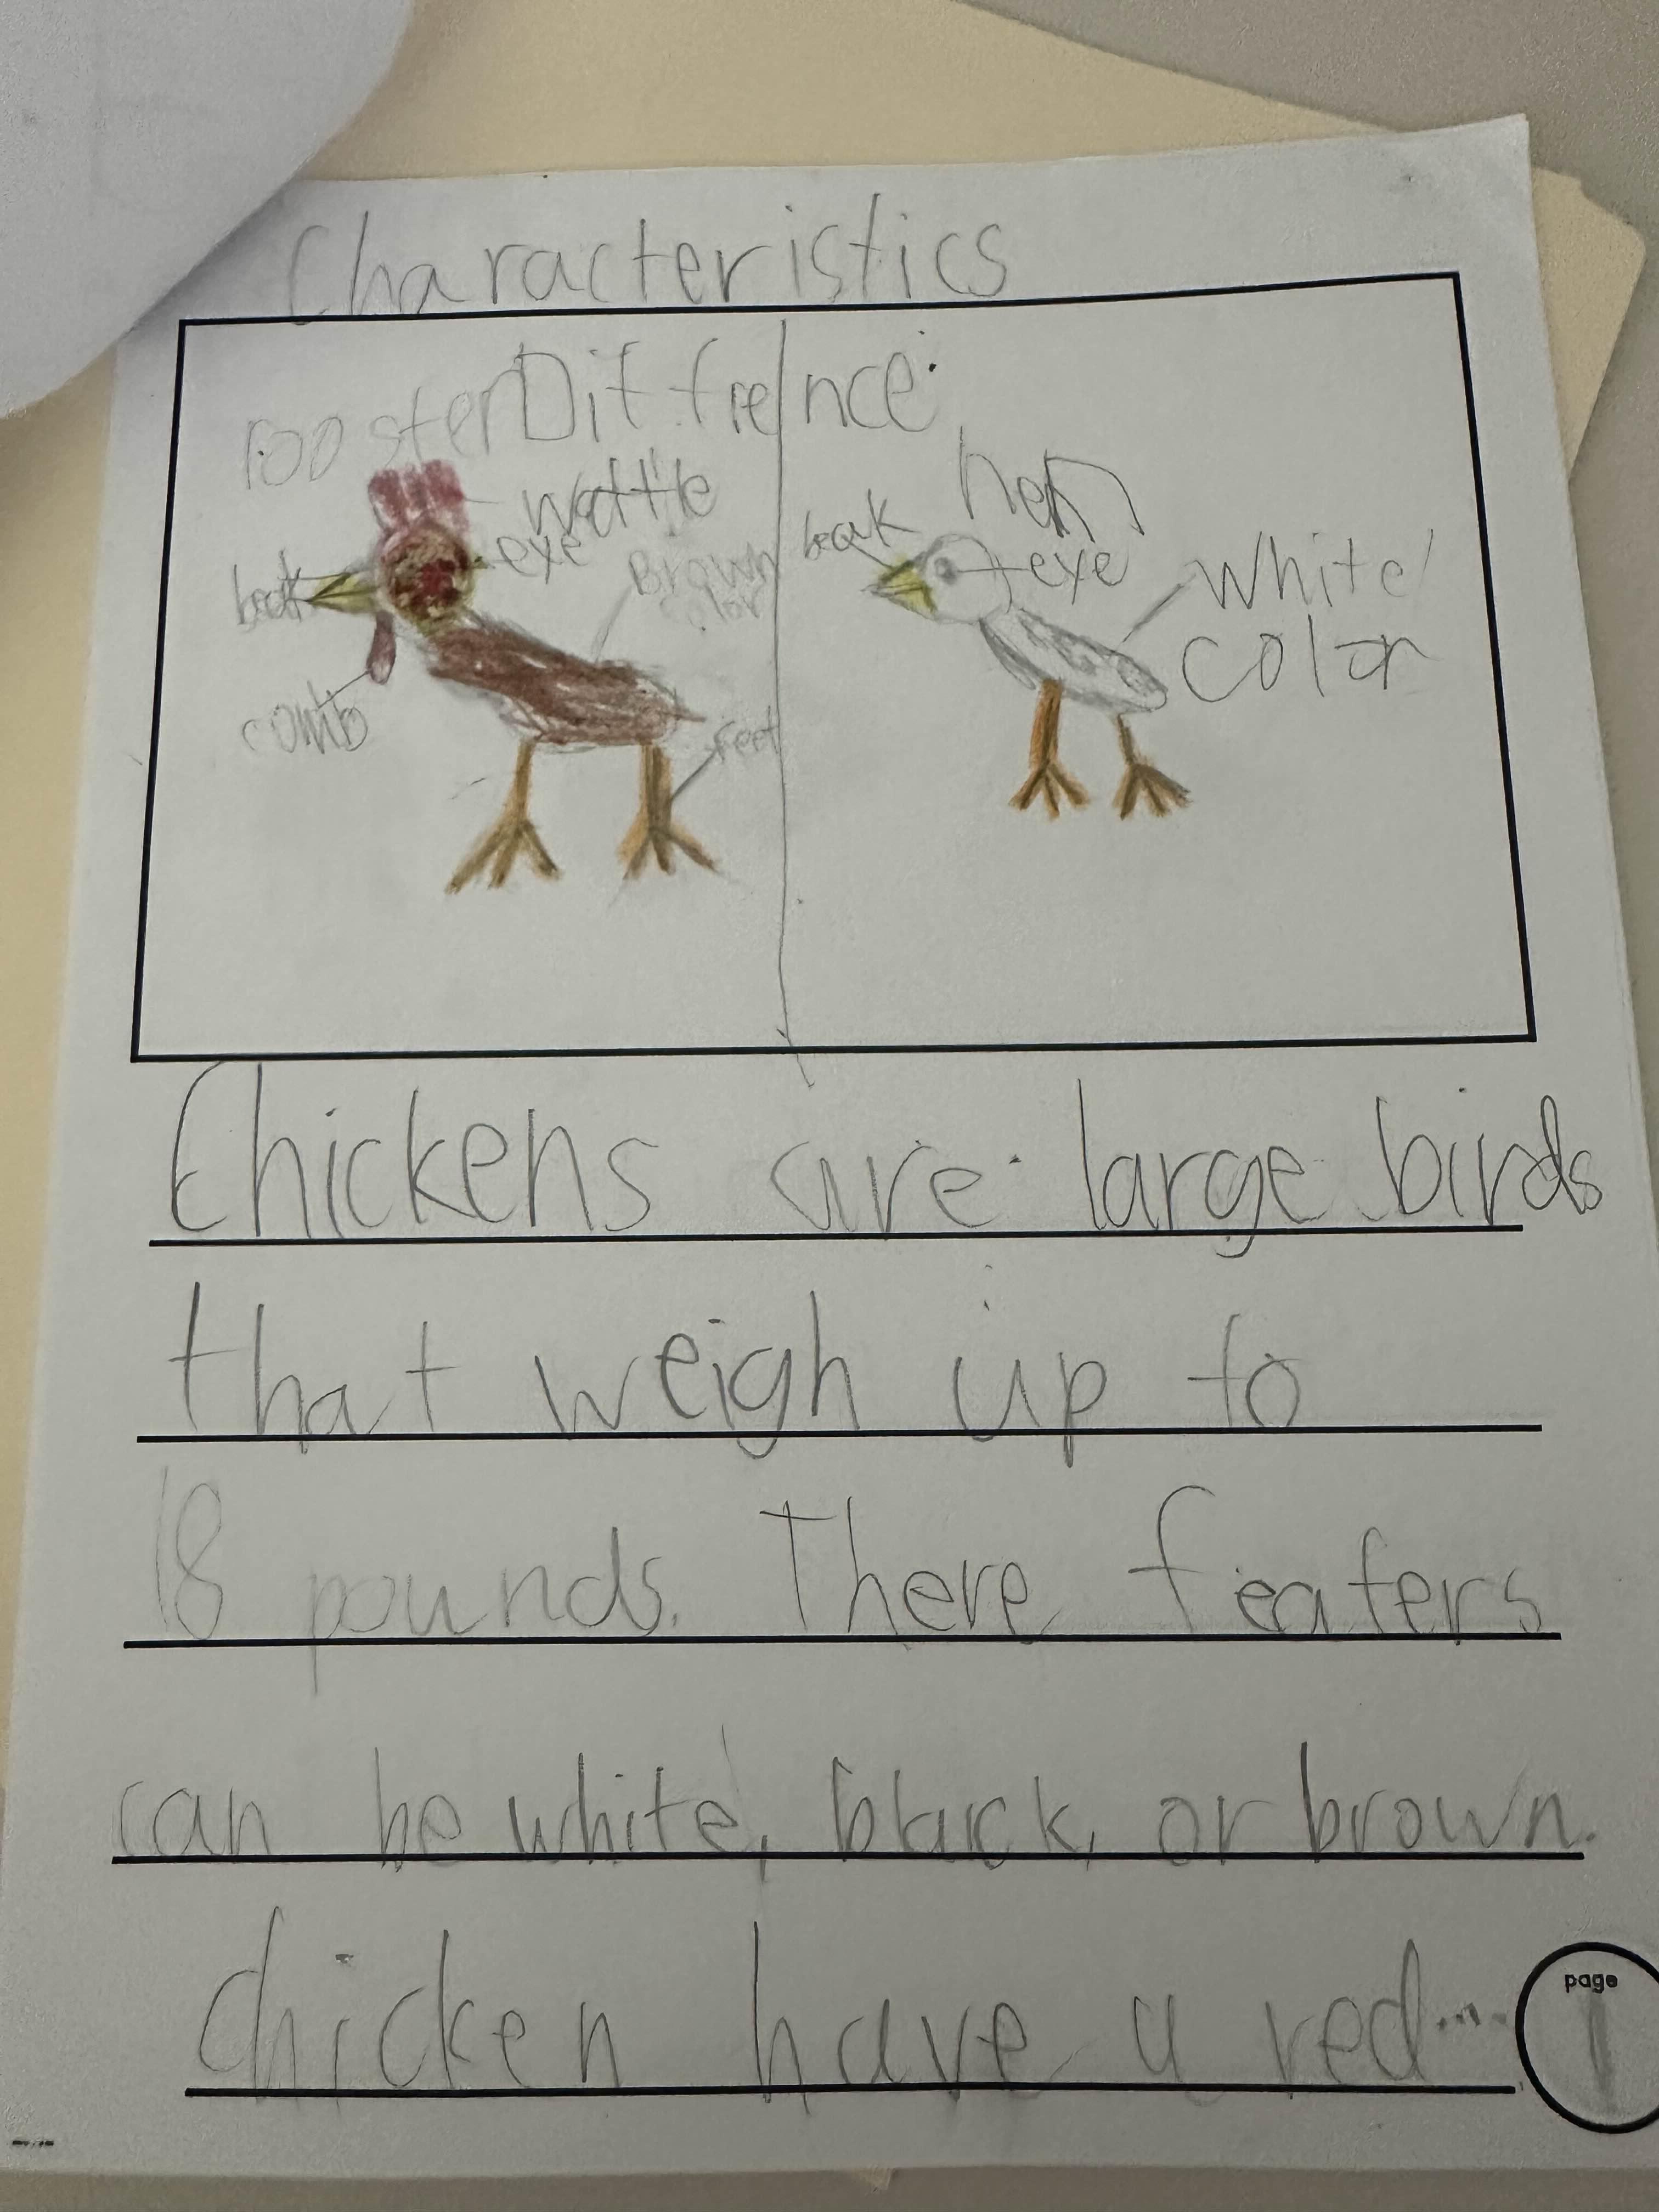 Characteristics
rooster Diffrence
hen
wattle
eye
beak
Brown
color
comb
feet
beak
eye
white
color
Chickens are large birds
that weigh up to
18 pounds. There feafers
can be white, black, or brown.
chicken have a red...
page
1